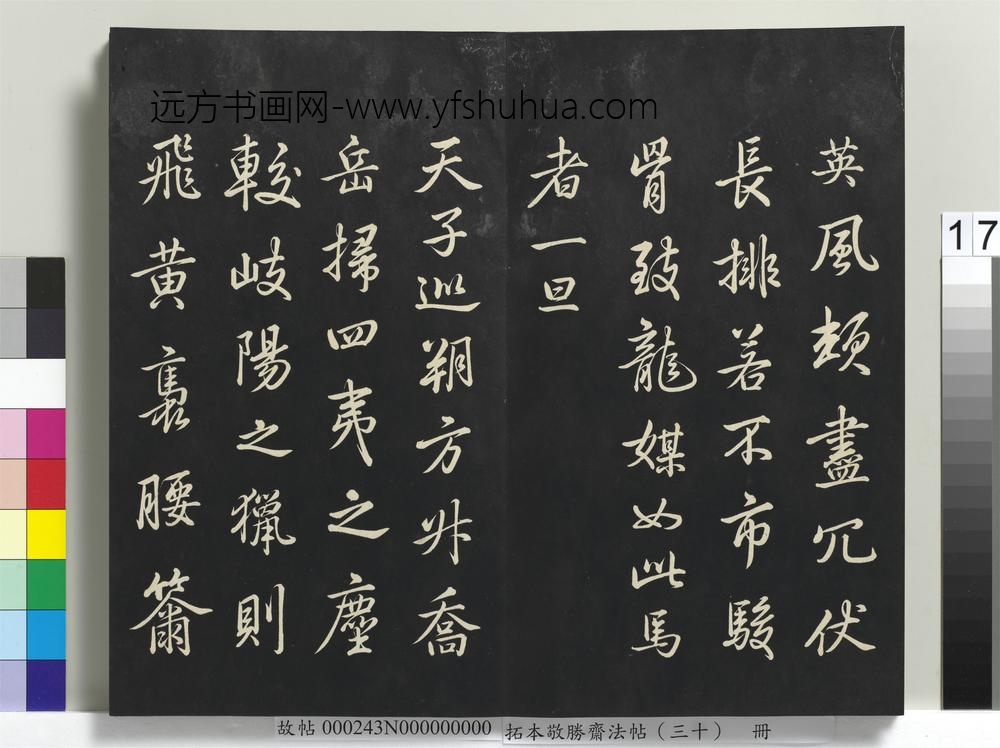 远方书画网-www.yfshuhua.com
英風頓盡冗仗
長排若不市駿
骨致龍媒如此馬
者一旦
天子巡朔方升喬
岳掃四夷之塵
較岐陽之獵則
飛黃褭腰簫
17
故帖 000243N000000000 拓本敬勝齋法帖（三十） 冊